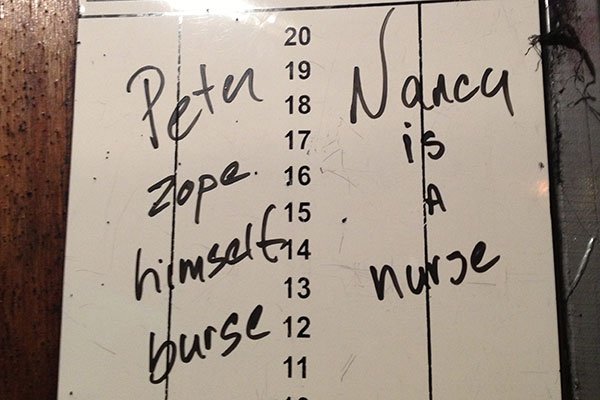 Peter
zope
himself
burse
20
19
18
17
16
15
14
13
12
11
Nancy
is
A
nurse